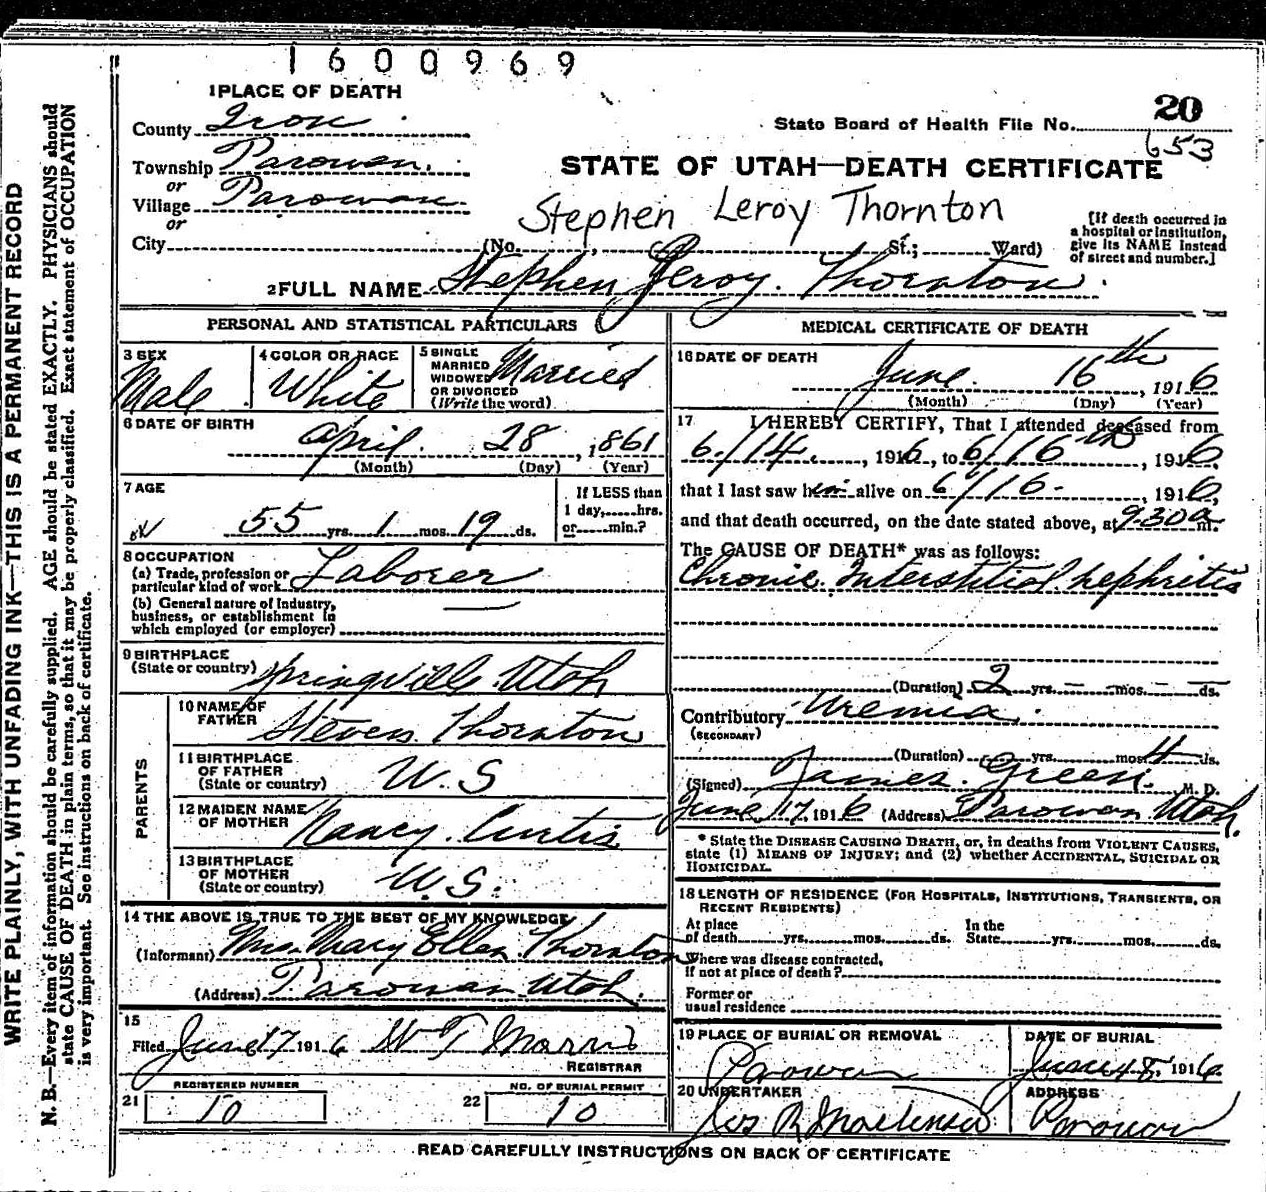 1600969
1 PLACE OF DEATH
County Iron
Township Parowan.
or
Village Parowan
or
City (No. , St.; Ward)
20
State Board of Health File No.
653
STATE OF UTAH—DEATH CERTIFICATE
Stephen Leroy Thornton
[If death occurred in
a hospital or institution,
give its NAME instead
of street and number.]
2 FULL NAME Stephen Leroy. Thornton.
PERSONAL AND STATISTICAL PARTICULARS
3 SEX
Male
4 COLOR OR RACE
White
5 SINGLE
MARRIED
WIDOWED
OR DIVORCED
(Write the word)
Married
6 DATE OF BIRTH
April. 28, 1861
(Month) (Day) (Year)
7 AGE
55 yrs. 1 mos. 19 ds.
If LESS than
1 day, hrs.
or min.?
8 OCCUPATION
(a) Trade, profession or
particular kind of work Laborer
(b) General nature of Industry,
business, or establishment in
which employed (or employer)
9 BIRTHPLACE
(State or country) Springville Utah
PARENTS
10 NAME OF
FATHER Steven Thornton
11 BIRTHPLACE
OF FATHER
(State or country) U.S
12 MAIDEN NAME
OF MOTHER Nancy. Curtis
13 BIRTHPLACE
OF MOTHER
(State or country) U.S.
14 THE ABOVE IS TRUE TO THE BEST OF MY KNOWLEDGE
(Informant) Mrs. Mary Ellen Thornton
(Address) Parowan Utah.
15
Filed June 17 1916 W T Morris
REGISTRAR
REGISTERED NUMBER
21 10
NO. OF BURIAL PERMIT
22 10
MEDICAL CERTIFICATE OF DEATH
16 DATE OF DEATH
June. 16th, 1916
(Month) (Day) (Year)
17 I HEREBY CERTIFY, That I attended deceased from
6/14., 1916, to 6/16th, 1916,
that I last saw him alive on 6/16-, 1916,
and that death occurred, on the date stated above, at 930a m.
The CAUSE OF DEATH* was as follows:
Chronic. Interstitial nephritis
(Duration) 2 yrs. - mos. - ds.
Contributory Uremia.
(SECONDARY)
(Duration) yrs. mos. 4 ds.
(Signed) James. Green. M. D.
June 17, 1916 (Address) Parowan Utah.
* State the DISEASE CAUSING DEATH, or, in deaths from VIOLENT CAUSES,
state (1) MEANS OF INJURY; and (2) whether ACCIDENTAL, SUICIDAL OR
HOMICIDAL.
18 LENGTH OF RESIDENCE (FOR HOSPITALS, INSTITUTIONS, TRANSIENTS, OR
RECENT RESIDENTS)
At place In the
of death yrs. mos. ds. State yrs. mos. ds.
Where was disease contracted,
If not at place of death?
Former or
usual residence
19 PLACE OF BURIAL OR REMOVAL
Parowan
DATE OF BURIAL
June 18. 1916
20 UNDERTAKER
ADDRESS
Parowan
READ CAREFULLY INSTRUCTIONS ON BACK OF CERTIFICATE
WRITE PLAINLY, WITH UNFADING INK—THIS IS A PERMANENT RECORD
N. B.—Every item of information should be carefully supplied. AGE should be stated EXACTLY. PHYSICIANS should
state CAUSE OF DEATH in plain terms, so that it may be properly classified. Exact statement of OCCUPATION
is very important. See instructions on back of certificate.